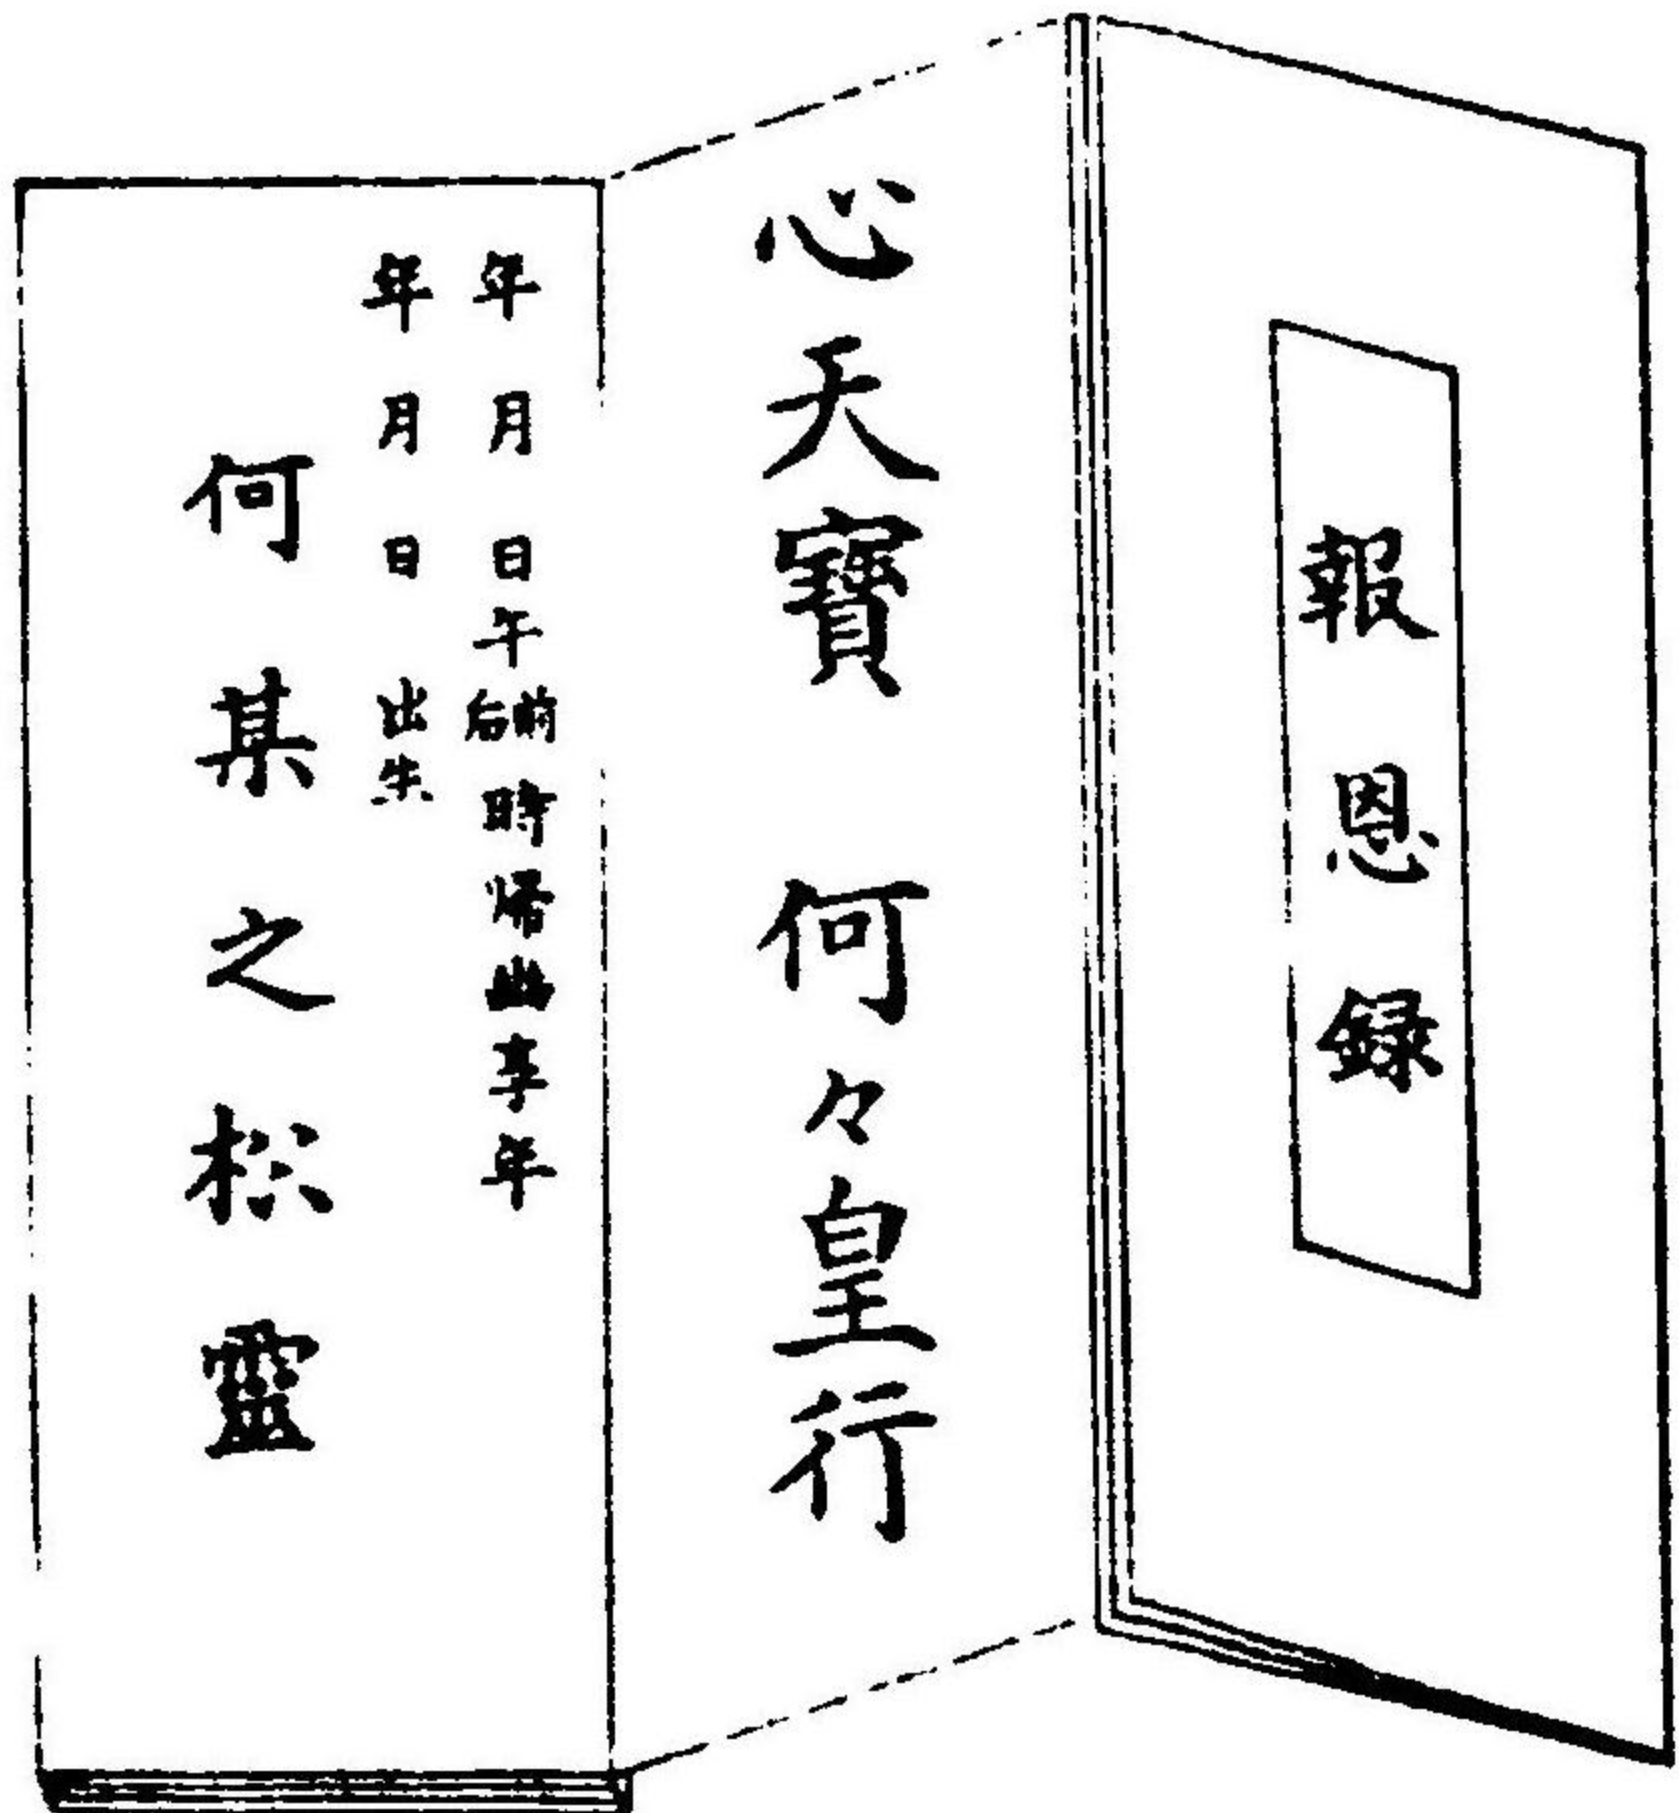 報恩録
心天寶 何々皇行
年月日午前后時帰幽享年
年月日出生
何某之松靈